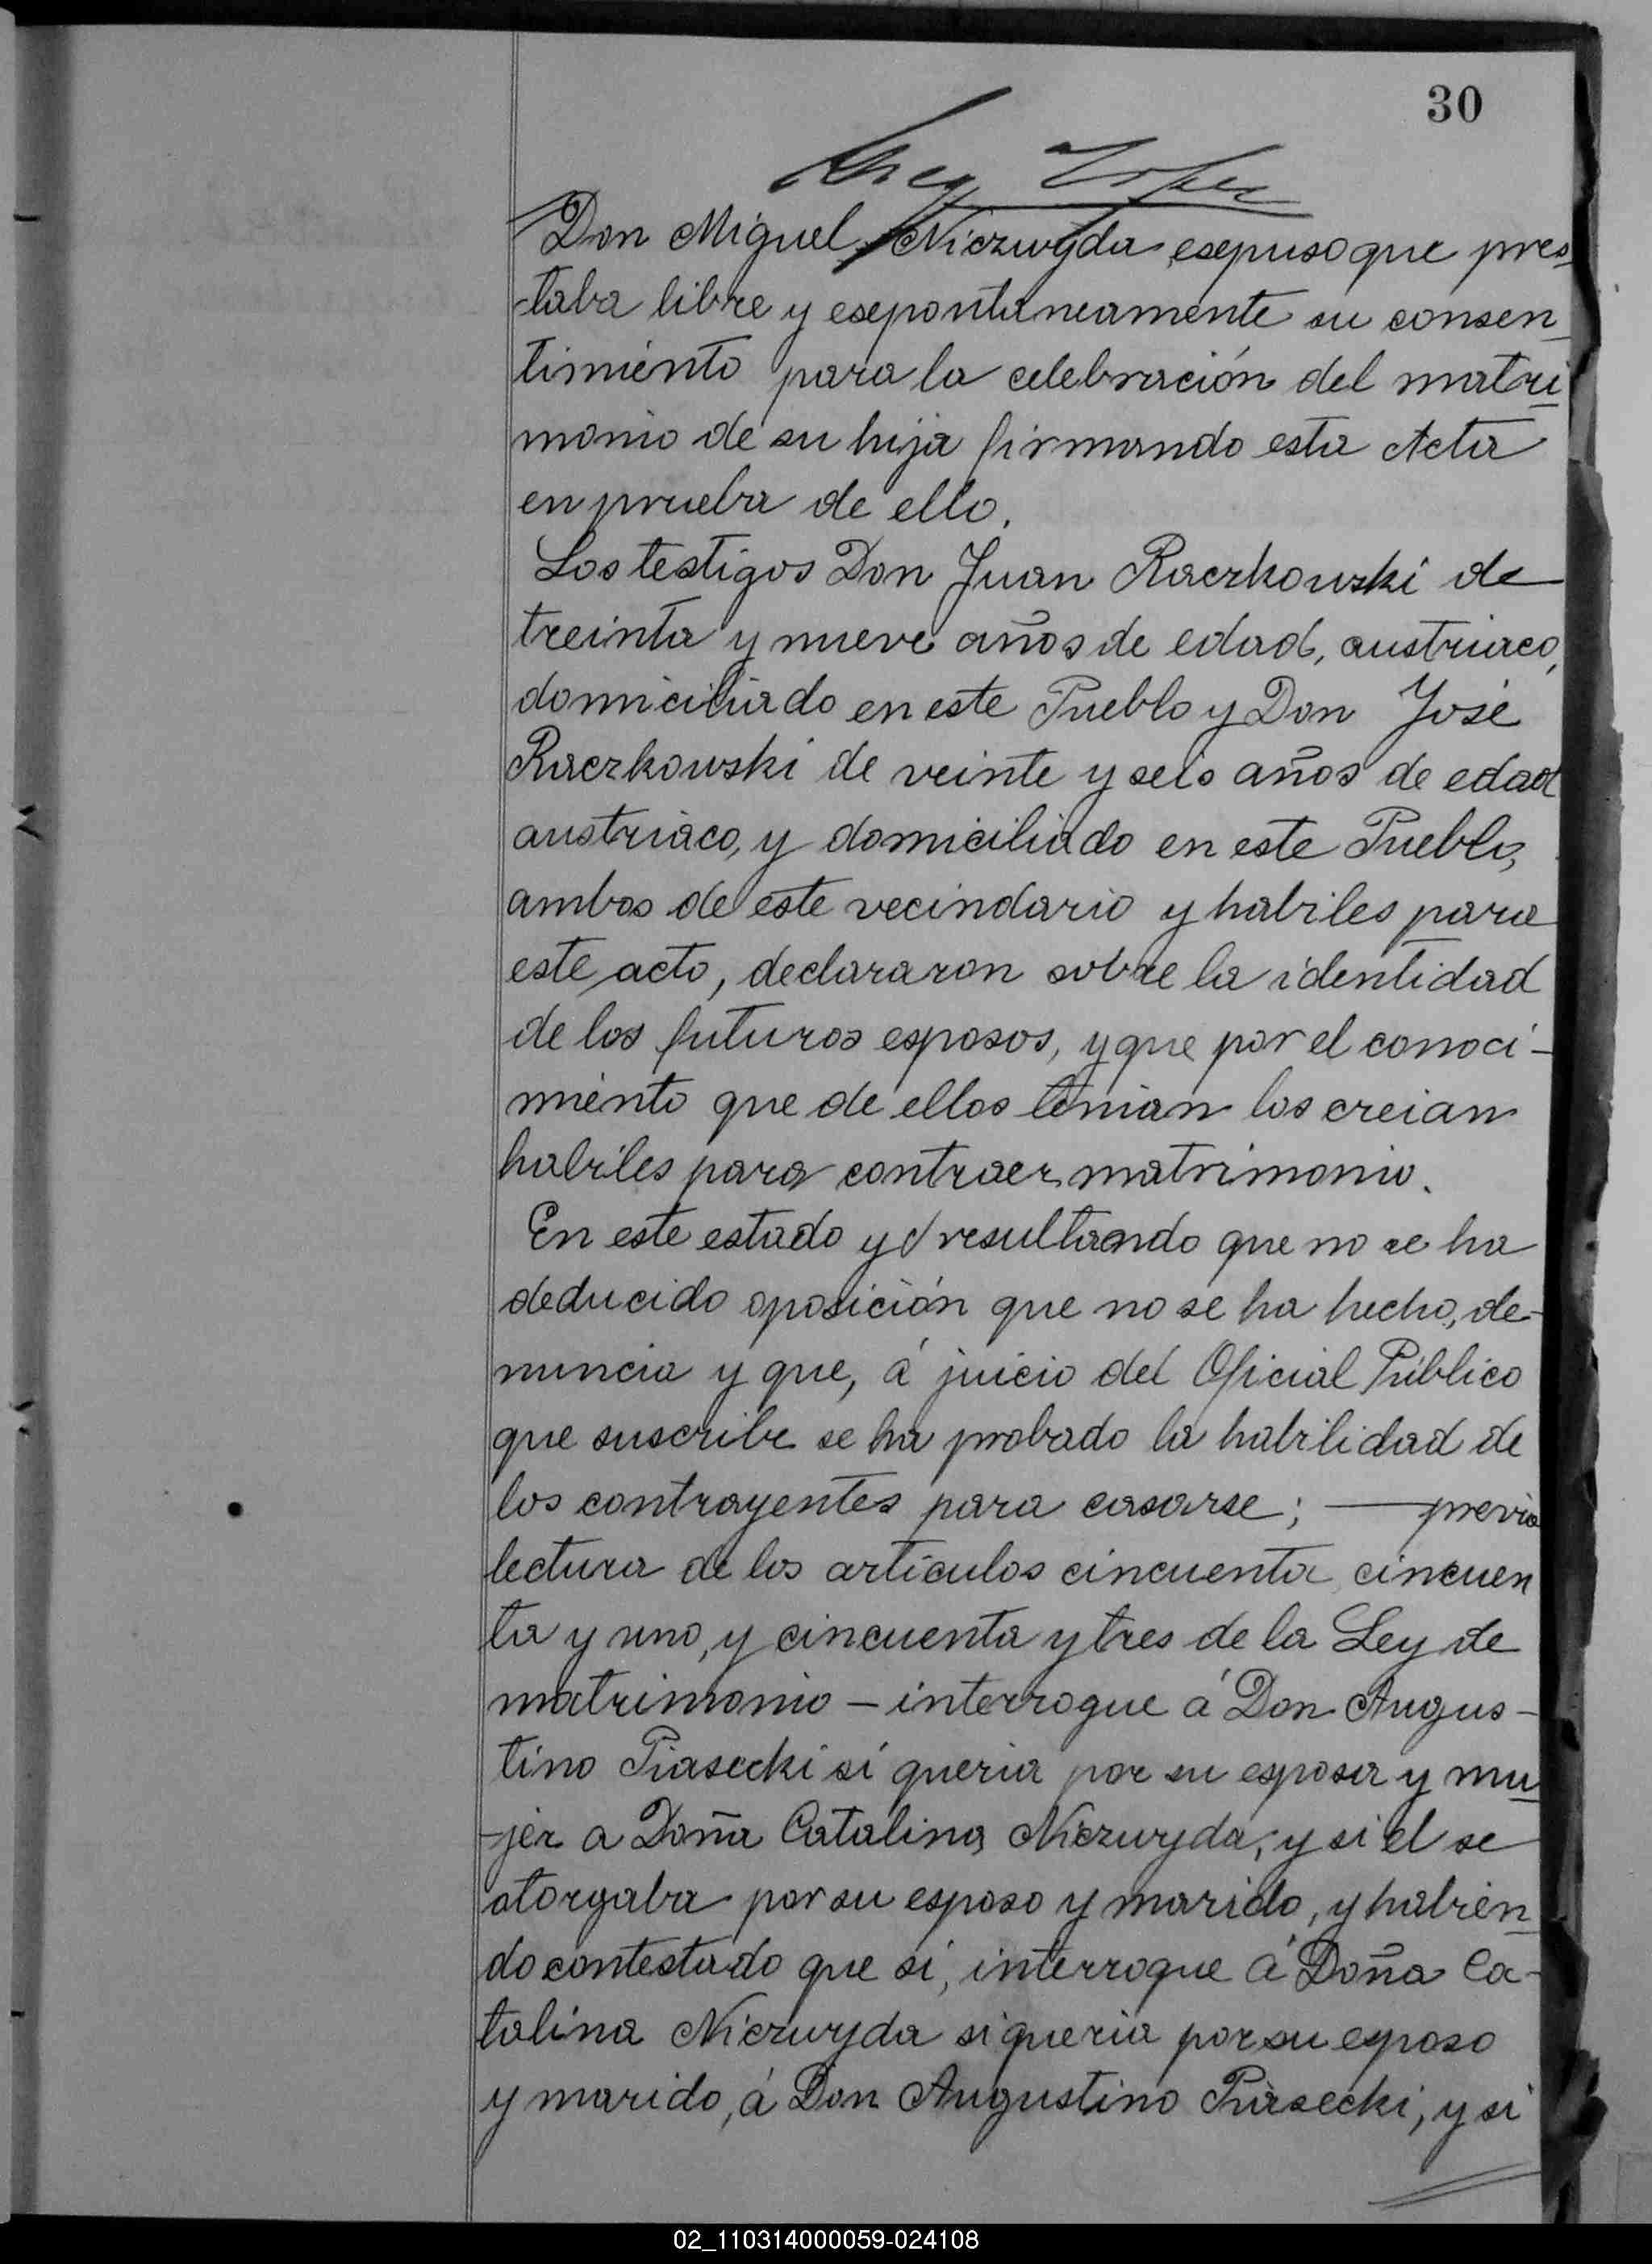 30
Don Miguel Niezwyda esepuso que pres
taba libre y esepontaneamente su consen
timiento para la celebración del matri
monio de su hija firmando esta Acta
en prueba de ello.
Los testigos Don Juan Raczkowski de
treinta y nueve años de edad, austriaco,
domiciliado en este Pueblo y Don José
Raczkowski de veinte y seis años de edad
austriaco, y domiciliado en este Pueblo,
ambos de este vecindario y habiles para
este acto, declararon sobre la identidad
de los futuros esposos, y que por el conoci-
miento que de ellos tenian los creian
habiles para contraer matrimonio.
En este estado y resultando que no se ha
deducido oposición que no se ha hecho, de-
nuncia y que, á juicio del Oficial Público
que suscribe se ha probado la habilidad de
los contrayentes para casarse; — previa
lectura de los artículos cincuenta cincuen
ta y uno, y cincuenta y tres de la Ley de
matrimonio – interrogue á Don Augus-
tino Piasecki si queria por su esposa y mu
-jer a Doña Catalina Niezwyda; y si el se
otorgaba por su esposo y marido, y habien
do contestado que si, interrogue á Doña Ca-
talina Niezwyda si queria por su esposo
y marido, á Don Augustino Piasecki, y si
02_110314000059-024108